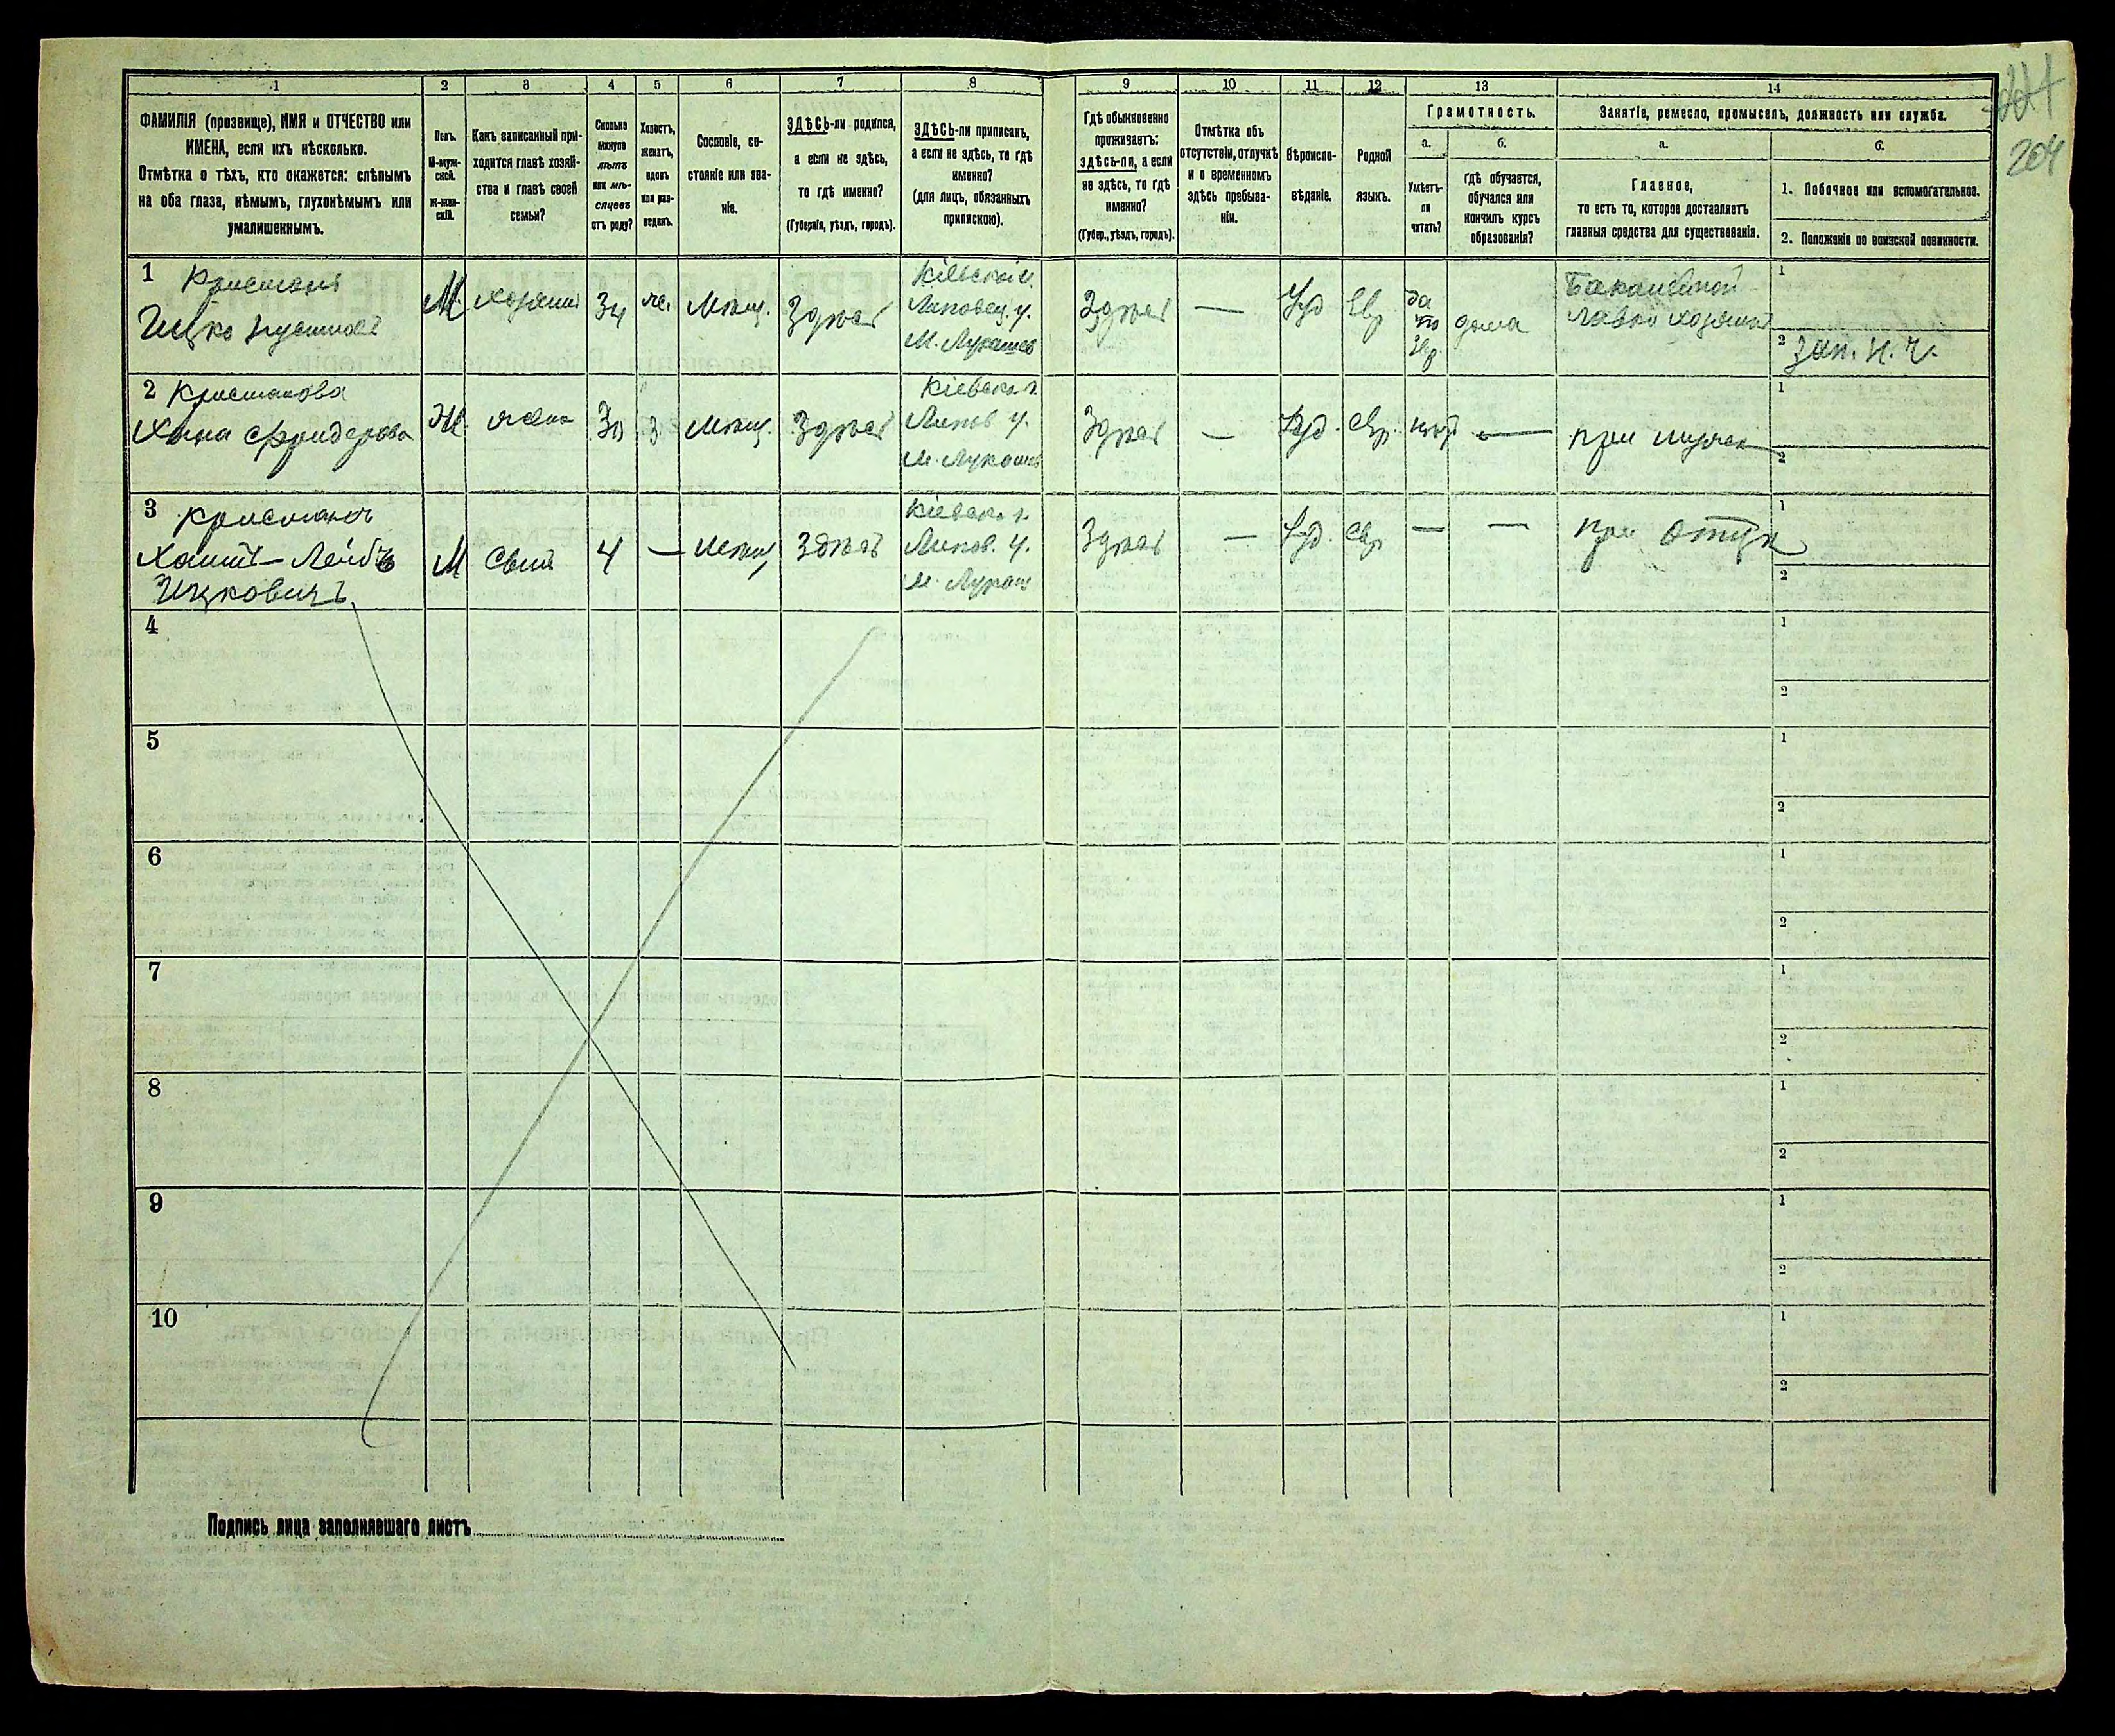 1 2 3 4 5 6 7 8 9 10 11 12 13 14
204
ФАМИЛІЯ (прозвище), ИМЯ и ОТЧЕСТВО или
ИМЕНА, если ихъ нѣсколько.
Отмѣтка о тѣхъ, кто окажется: слѣпымъ
на оба глаза, нѣмымъ, глухонѣмымъ или
умалишеннымъ.
Полъ.
М-муж-
ской.
Ж-жен-
скій.
Какъ записанный при-
ходится главѣ хозяй-
ства и главѣ своей
семьи?
Сколько
минуло
лѣтъ
или мѣ-
сяцевъ
отъ роду?
Холостъ,
женатъ,
вдовъ
или раз-
веденъ.
Сословіе, со-
стояніе или зва-
ніе.
ЗДѢСЬ-ли родился,
а если не здѣсь,
то гдѣ именно?
(Губернія, уѣздъ, городъ).
ЗДѢСЬ-ли приписанъ,
а если не здѣсь, то гдѣ
именно?
(для лицъ, обязанныхъ
припискою).
Гдѣ обыкновенно
проживаетъ:
здѣсь-ли, а если
не здѣсь, то гдѣ
именно?
(Губер., уѣздъ, городъ).
Отмѣтка объ
отсутствіи, отлучкѣ
и о временномъ
здѣсь пребыва-
ніи.
Вѣроиспо-
вѣданіе.
Родной
языкъ.
Грамотность.
а.
Умѣетъ-
ли
читать?
б.
гдѣ обучается,
обучался или
кончилъ курсъ
образованія?
Занятіе, ремесло, промыселъ, должность или служба.
а.
Главное,
то есть то, которое доставляетъ
главныя средства для существованія.
б.
1. Побочное или вспомогательное.
2. Положеніе по воинской повинности.
1 Крисманъ
Ицко
М хозяинъ 34 же. Мѣщ. Здѣсь
Кіевской г.
Липовец. у.
М. Лукашев
Здѣсь — Іуд Евр
да
по
Евр.
дома
Бакалейной
лавки хозяинъ
1
2 зап. н. ч.
2 Крисманова
Хана
Ж жена 30 з Мѣщ. Здѣсь
Кіевск. г.
Липов у.
м. Лукашев
Здѣсь — Іуд. Евр. нѣтъ — при мужѣ
1
2
3 Крисманъ
Хаимъ-Лейбъ
Ицковичъ
М сынъ 4 — мѣщ, Здѣсь
Кіевск. г.
Липов. у.
м. Лукаш
Здѣсь — Іуд. Евр — — при отцѣ
1
2
4
1
2
5
1
2
6
1
2
7
1
2
8
1
2
9
1
2
10
1
2
Подпись лица заполнявшаго листъ